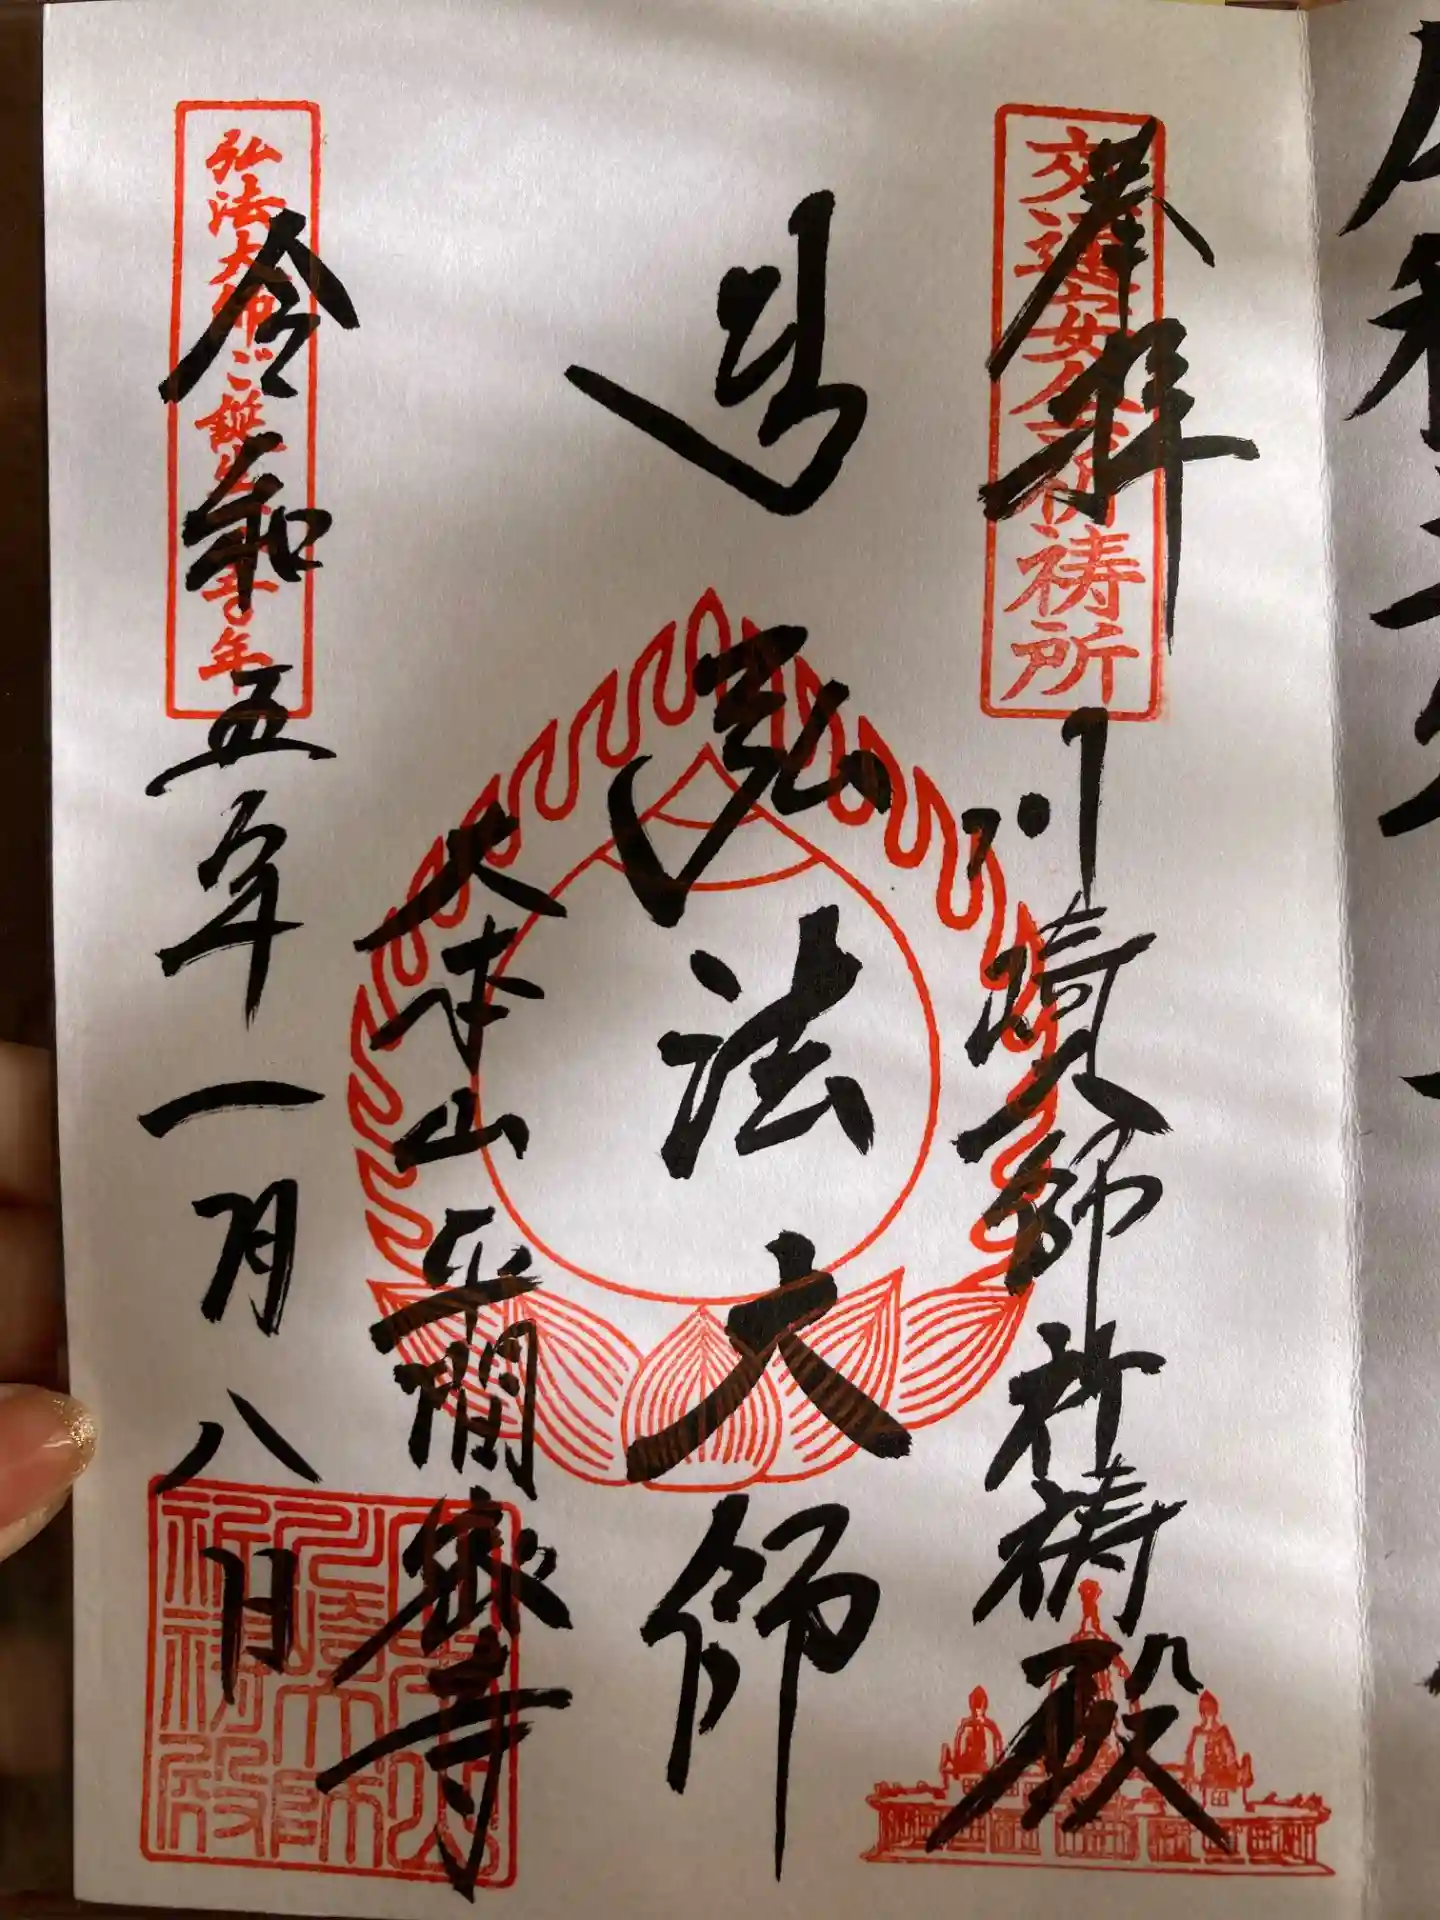 奉拝
交通安全祈祷所
川崎大師祈祷殿
弘法大師
大本山 平間寺
令和五年一月八日
弘法大師ご誕生
年